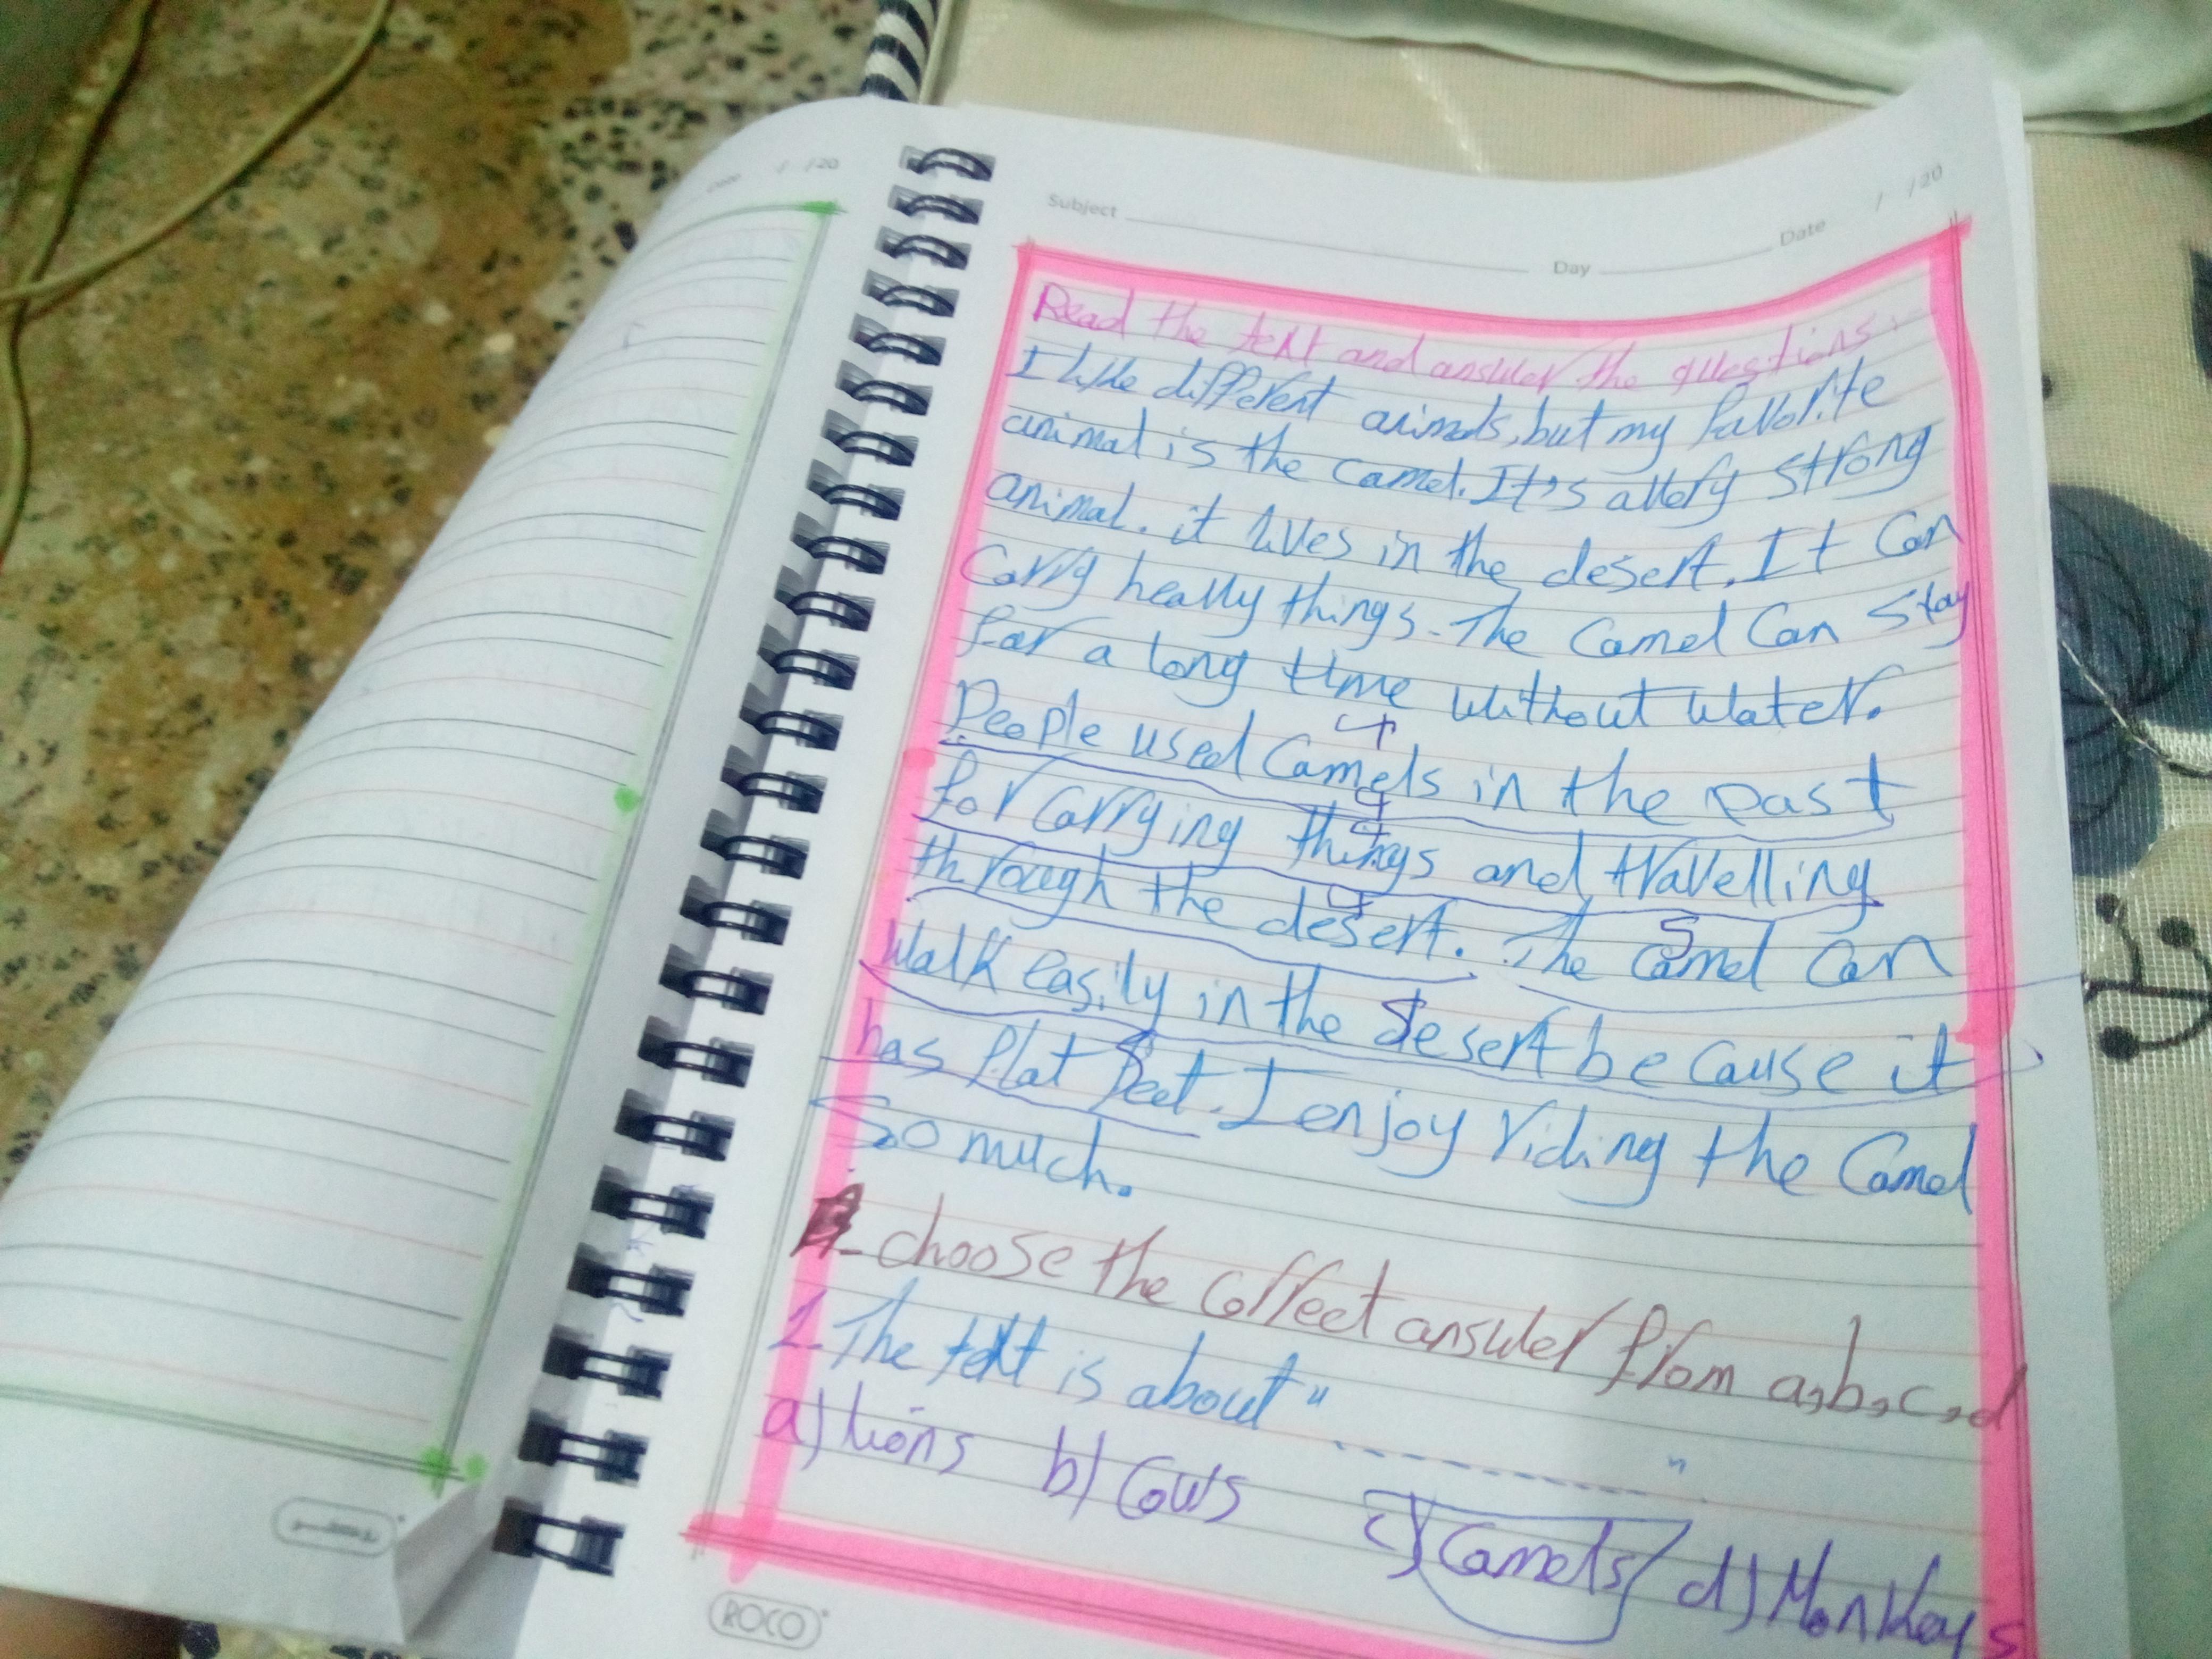 Date / /20
Subject Day Date / /20
Read the text and answer the questions.
I like different animals, but my favorite
animal is the camel. It's a very strong
animal. it lives in the desert. It can
carry heavy things. The camel can stay
for a long time without water.
4
People used camels in the past
4
for carrying things and travelling
4
through the desert. The camel can
5
walk easily in the desert because it
5
has flat feet. I enjoy riding the camel
so much.
- choose the correct answer from a,b,c,d
1- The text is about " "
a) lions b) cows c) camels d) Monkeys
ROCO